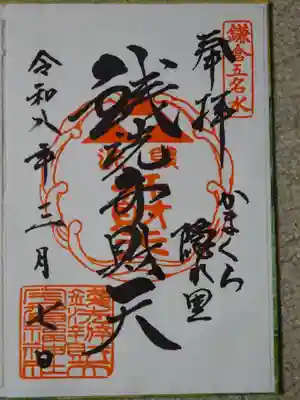 鎌倉五名水
奉拝
かまくら
隠れ里
銭洗弁財天
令和八年三月七日